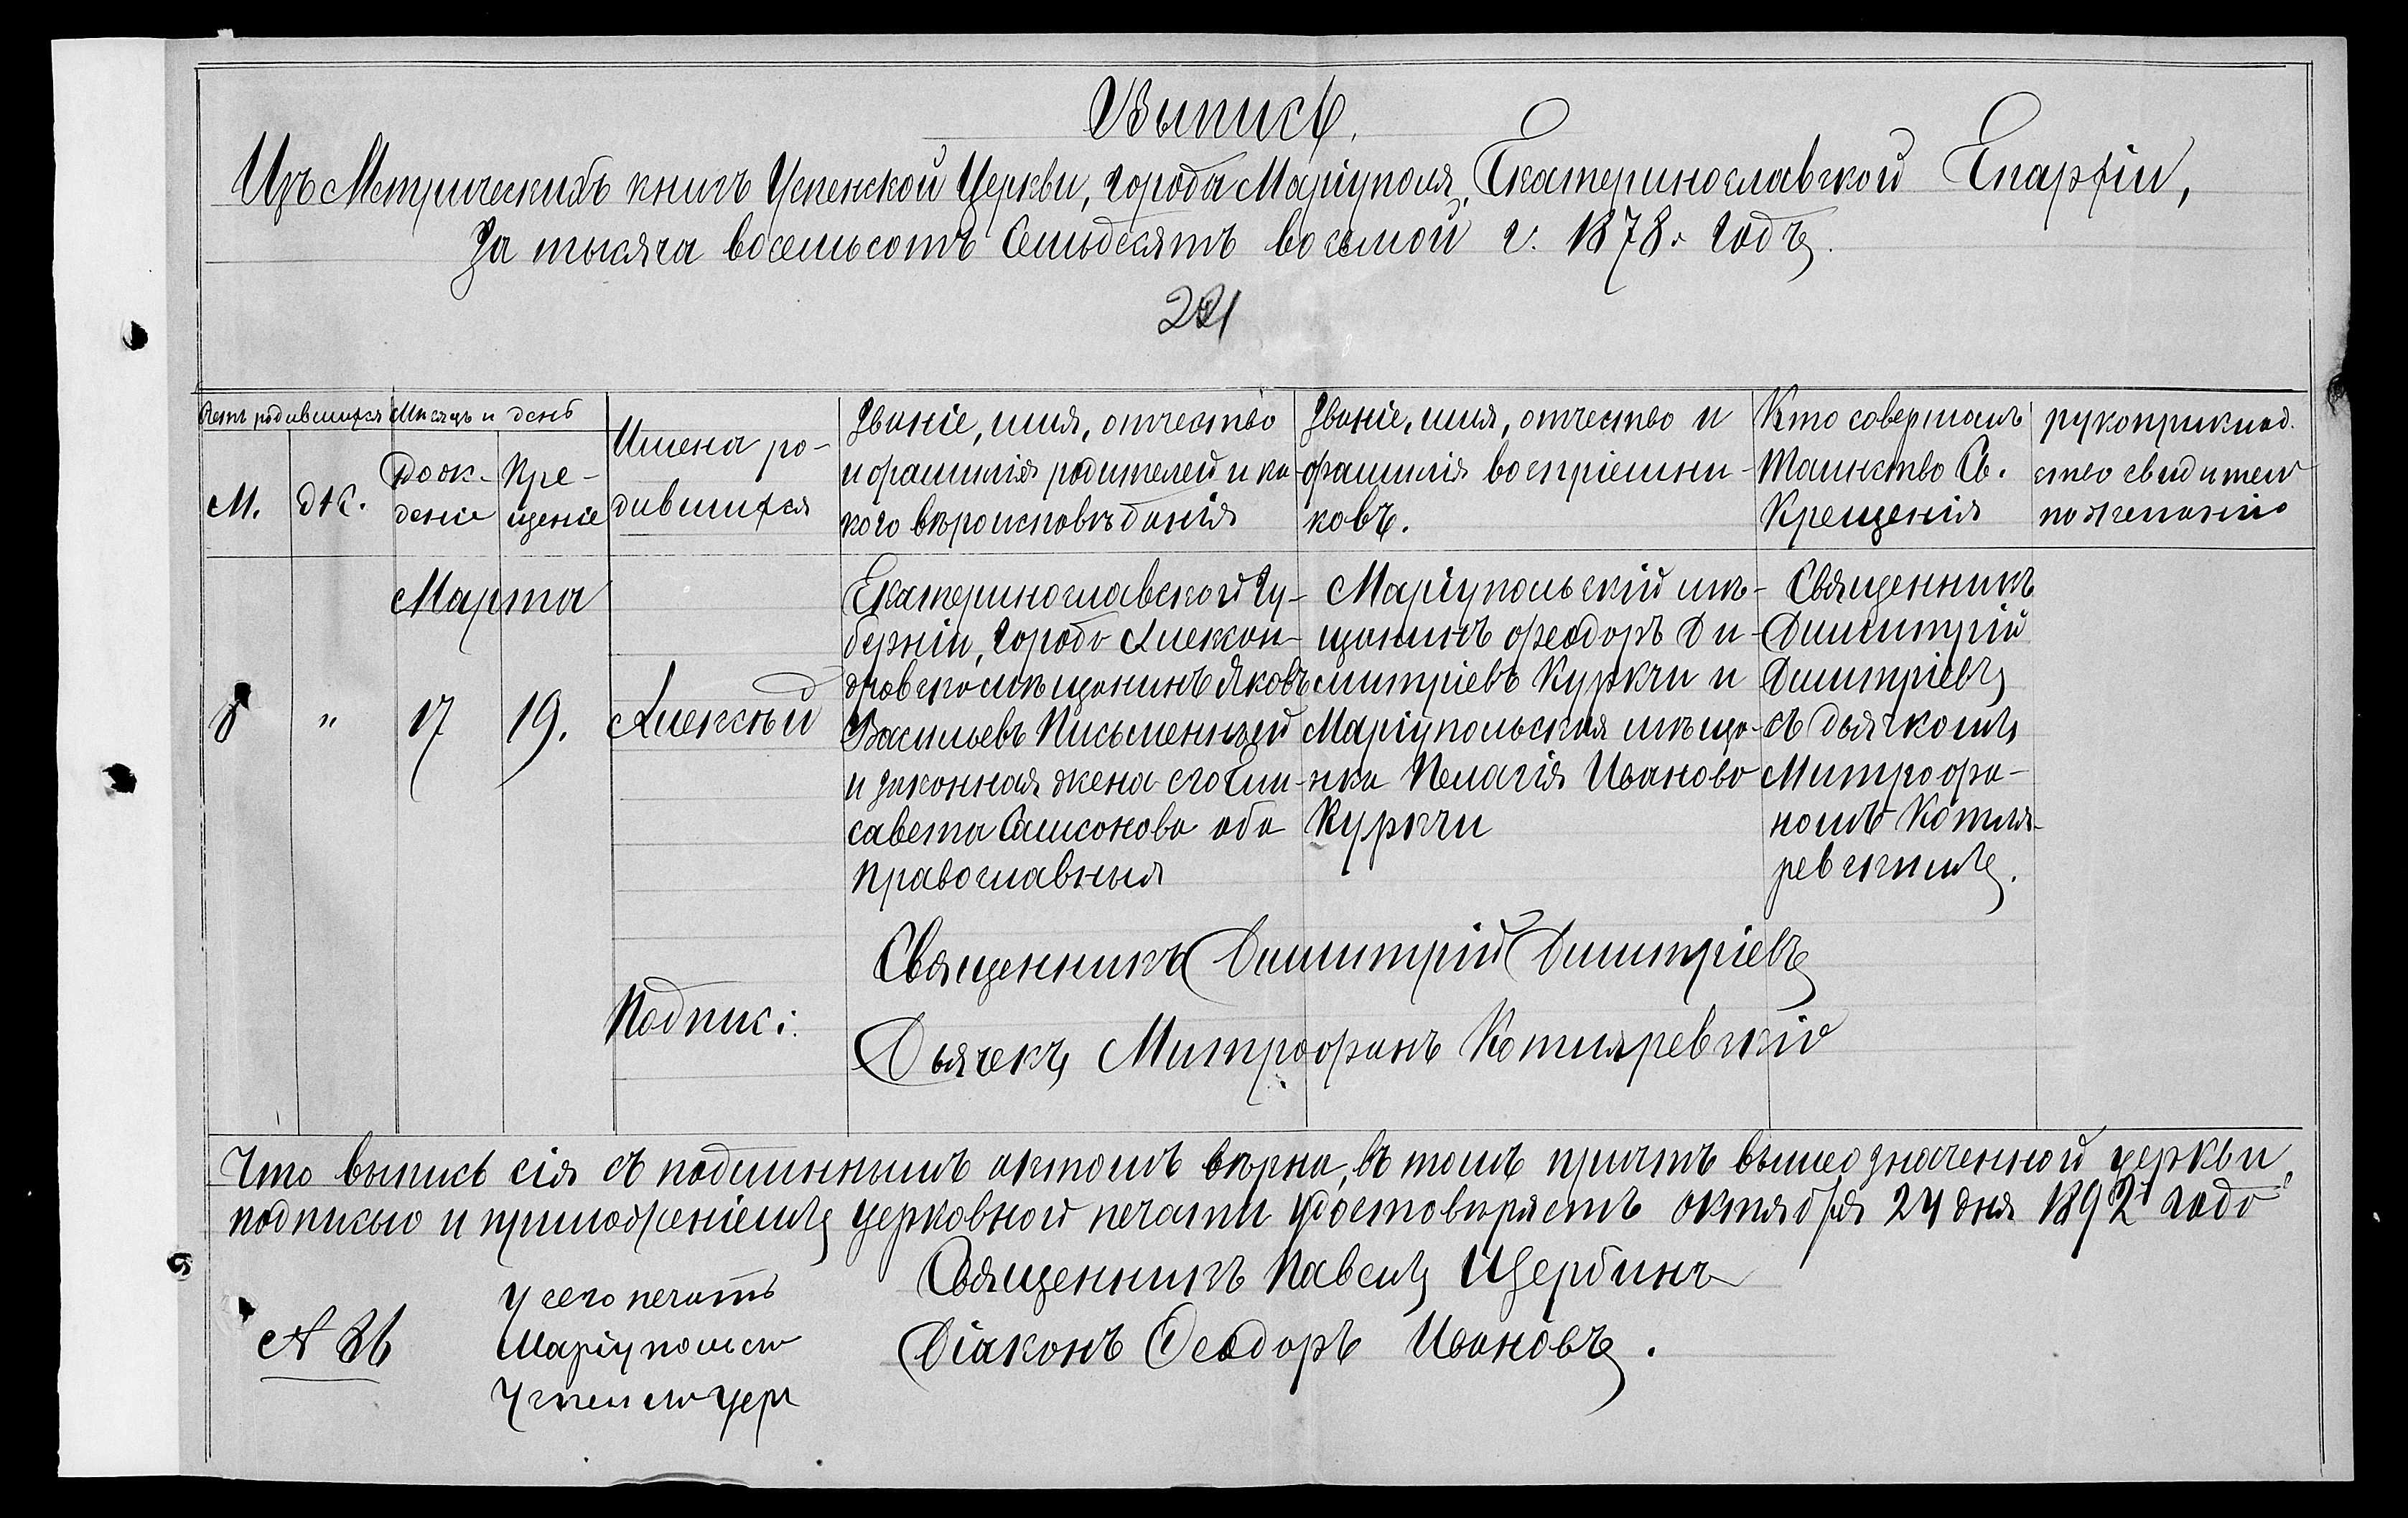 Выпись.
Изъ Метрическихъ книгъ Успенской Церкви, города Маріуполя, Екатеринославской Епархіи,
За тысяча восемьсотъ Семьдесятъ восьмой г. 1878. годъ.
221
Счетъ родившихся Мѣсяцъ и день
М.
Ж.
Рож-
деніе
Кре-
щеніе
Имена ро-
дившихся
Званіе, имя, отчество
и фамилія родителей и ка-
кого вѣроисповѣданія
Званіе, имя, отчество и
фамилія воспріемни-
ковъ.
Кто совершалъ
Таинство Св.
Крещенія
рукоприклад.
ство свидѣтел
по желанію
Марта
8
"
17
19.
Алексѣй
Екатеринославской Гу-
берніи, города Алексан-
дровска мѣщанинъ Яковъ
Васильевъ Письменный
и законная жена его Ели-
савета Самсонова оба
Православныя
Маріупольскій мѣ-
щанинъ Феодоръ Ди-
митріевъ Куркчи и
Маріупольская мѣща-
нка Пелагія Иванова
Куркчи
Священникъ
Димитрій
Димитріевъ
съ дьячкомъ
Митрофа-
номъ Котля-
ревскимъ.
Подпис:
Священникъ Димитрій Димитріевъ
Дьячекъ Митрофанъ Котляревскій
Что выпись сія съ подлиннымъ актомъ вѣрна, въ томъ причтъ вышеозначенной церкви,
подписью и приложеніемъ церковной печати удостовѣряетъ октября 24 дня 1892 года
Священникъ Павелъ Щербина
Діаконъ Феодоръ Ивановъ.
№ 86
У сего печать
Маріупольск
Успен ск церк